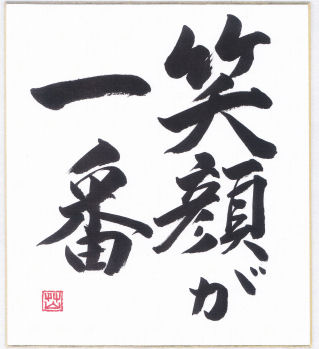 笑顔が
一番